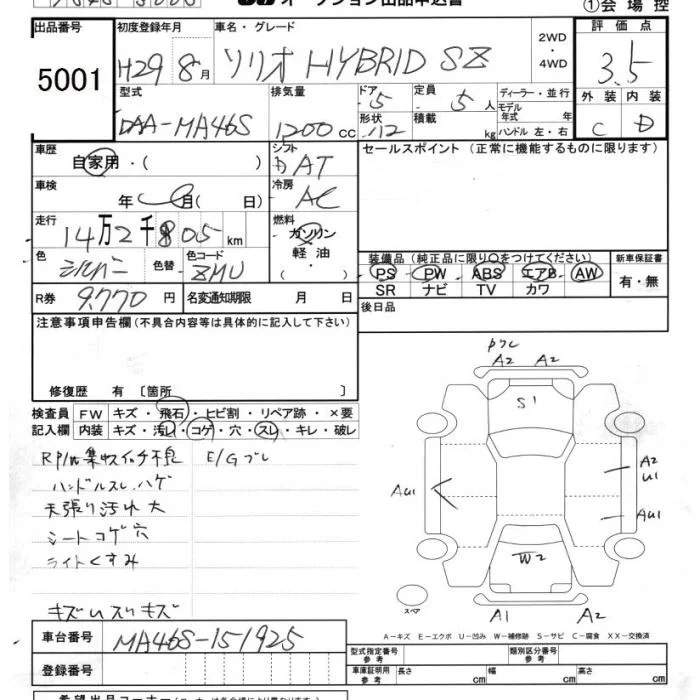 オークション出品申込書
①会場控
出品番号 初度登録年月 車名・グレード 評価点
5001 H29 8月 ソリオ HYBRID SZ 2WD・4WD 3.5
型式 排気量 ドア 定員 ディーラー・並行 外装 内装
DAA-MA46S 1200cc 5 5人 モデル年式 年 C D
形状 積載 kg ハンドル 左・右
車歴 シフト セールスポイント（正常に機能するものに限ります）
自家用・( ) AT
車検 冷房
年 月( 日) AC
走行 燃料
14万2千805km ガソリン
軽油
・( )
色 色替 色コード
シルバー ZMU
装備品（純正品に限り○をつけてください） 新車保証書
PS PW ABS エアB AW 有・無
SR ナビ TV カワ
R券 9,770円 名変通知期限 月 日
後日品
注意事項申告欄（不具合内容等は具体的に記入して下さい）
修復歴 有 〔箇所 〕
検査員 FW キズ・飛石・ヒビ割・リペア跡・×要
記入欄 内装 キズ・汚レ・コゲ・穴・スレ・キレ・破レ
R P/W集中スイッチ不良 E/Gブレ
ハンドルスレ、ハゲ
天張り汚れ大
シートコゲ穴
ライトくすみ
キズUスリキズ
A2 A2
S1
A2
U1
AU1 AU1
W2
スペア
A1 A2
A－キズ E－エクボ U－凹み W－補修跡 S－サビ C－腐食 XX－交換済
車台番号 MA46S-151925
登録番号
型式指定番号 参考 類別区分番号 参考
車庫証明用 参考 長さ cm 幅 cm 高さ cm